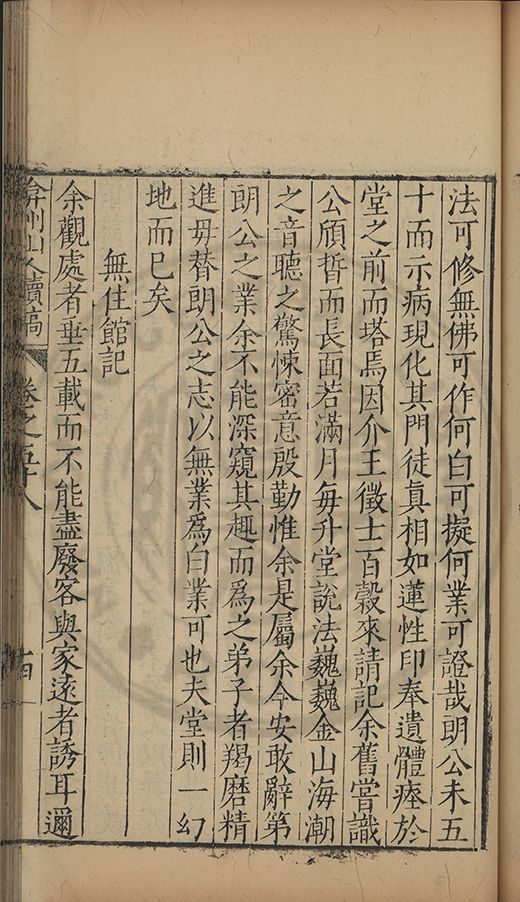 法可修無佛可作何白可擬何業可證哉朗公未五
十而示病現化其門徒眞相如蓮性印奉遺體瘞於
堂之前而塔焉因介王徵士百穀來請記余舊嘗識
公頎晳而長面若滿月每升堂說法巍巍金山海潮
之音聽之驚悚密意殷勤惟余是屬余今安敢辭第
朗公之業余不能深窺其趣而爲之弟子者羯磨精
進毋替朗公之志以無業爲白業可也夫堂則一幻
地而已矣
無住館記
余觀處者垂五載而不能盡廢客與家遠者誘耳邇
弇州山人續稿
卷之五十八